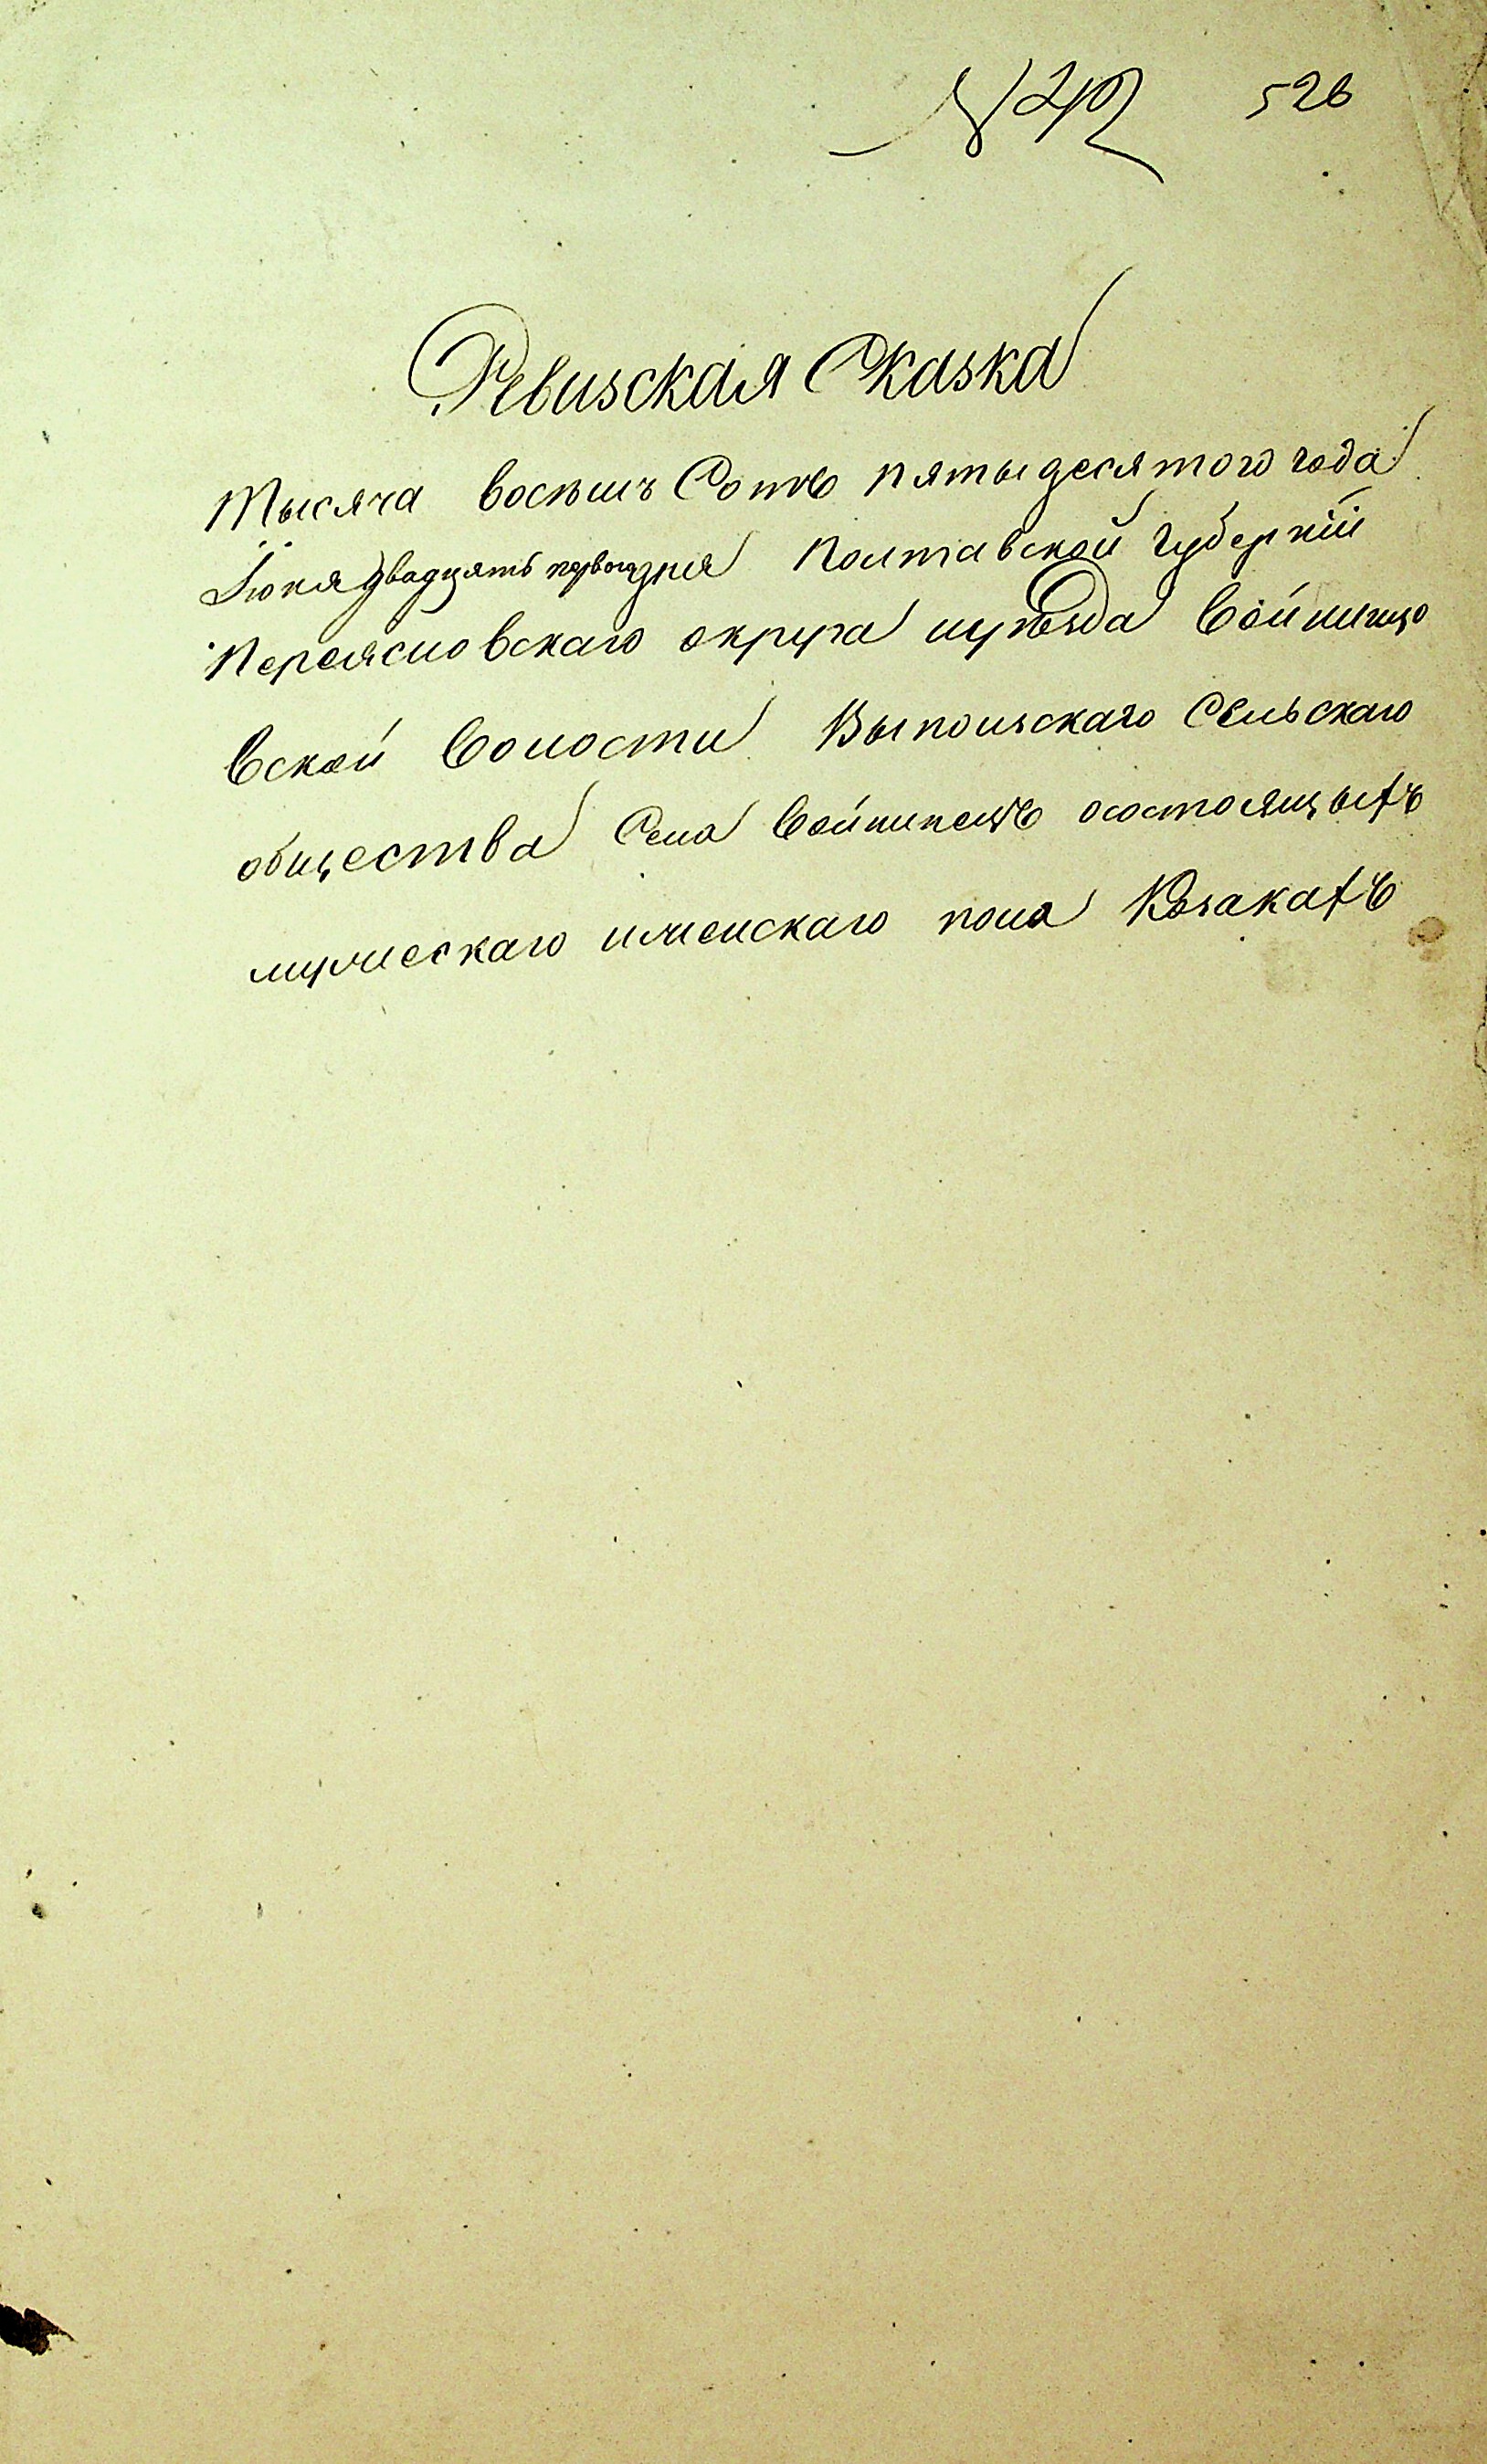 № 42 526
Ревизская Сказка
Тысяча восемъ Сотъ пятыдесятого года
Іюня двадцять первого дня Полтавской губерніи
Переясловскаго округа иуѣзда Войниицо
вской волости Выпольскаго Сельскаго
общества Села Войнинецъ осостоящыхъ
мужескаго иженскаго пола Козакахъ